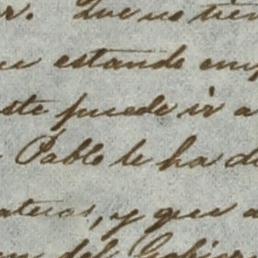 r. Que no tien
estando em
ste puede ir a
Pablo le ha d
ateras, y que a
del Gobier